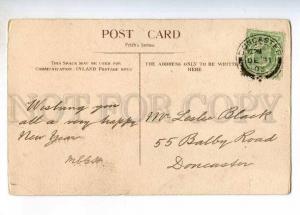 POST CARD
THIS SPACE MAY BE USED FOR
COMMUNICATION INLAND POSTAGE ONLY
THE ADDRESS ONLY TO BE WRITTEN
HERE
DONCASTER
NOT FOR COPY
Wishing you
all a very happy
New Year
Mr Leslie Black
55 Balby Road
Doncaster